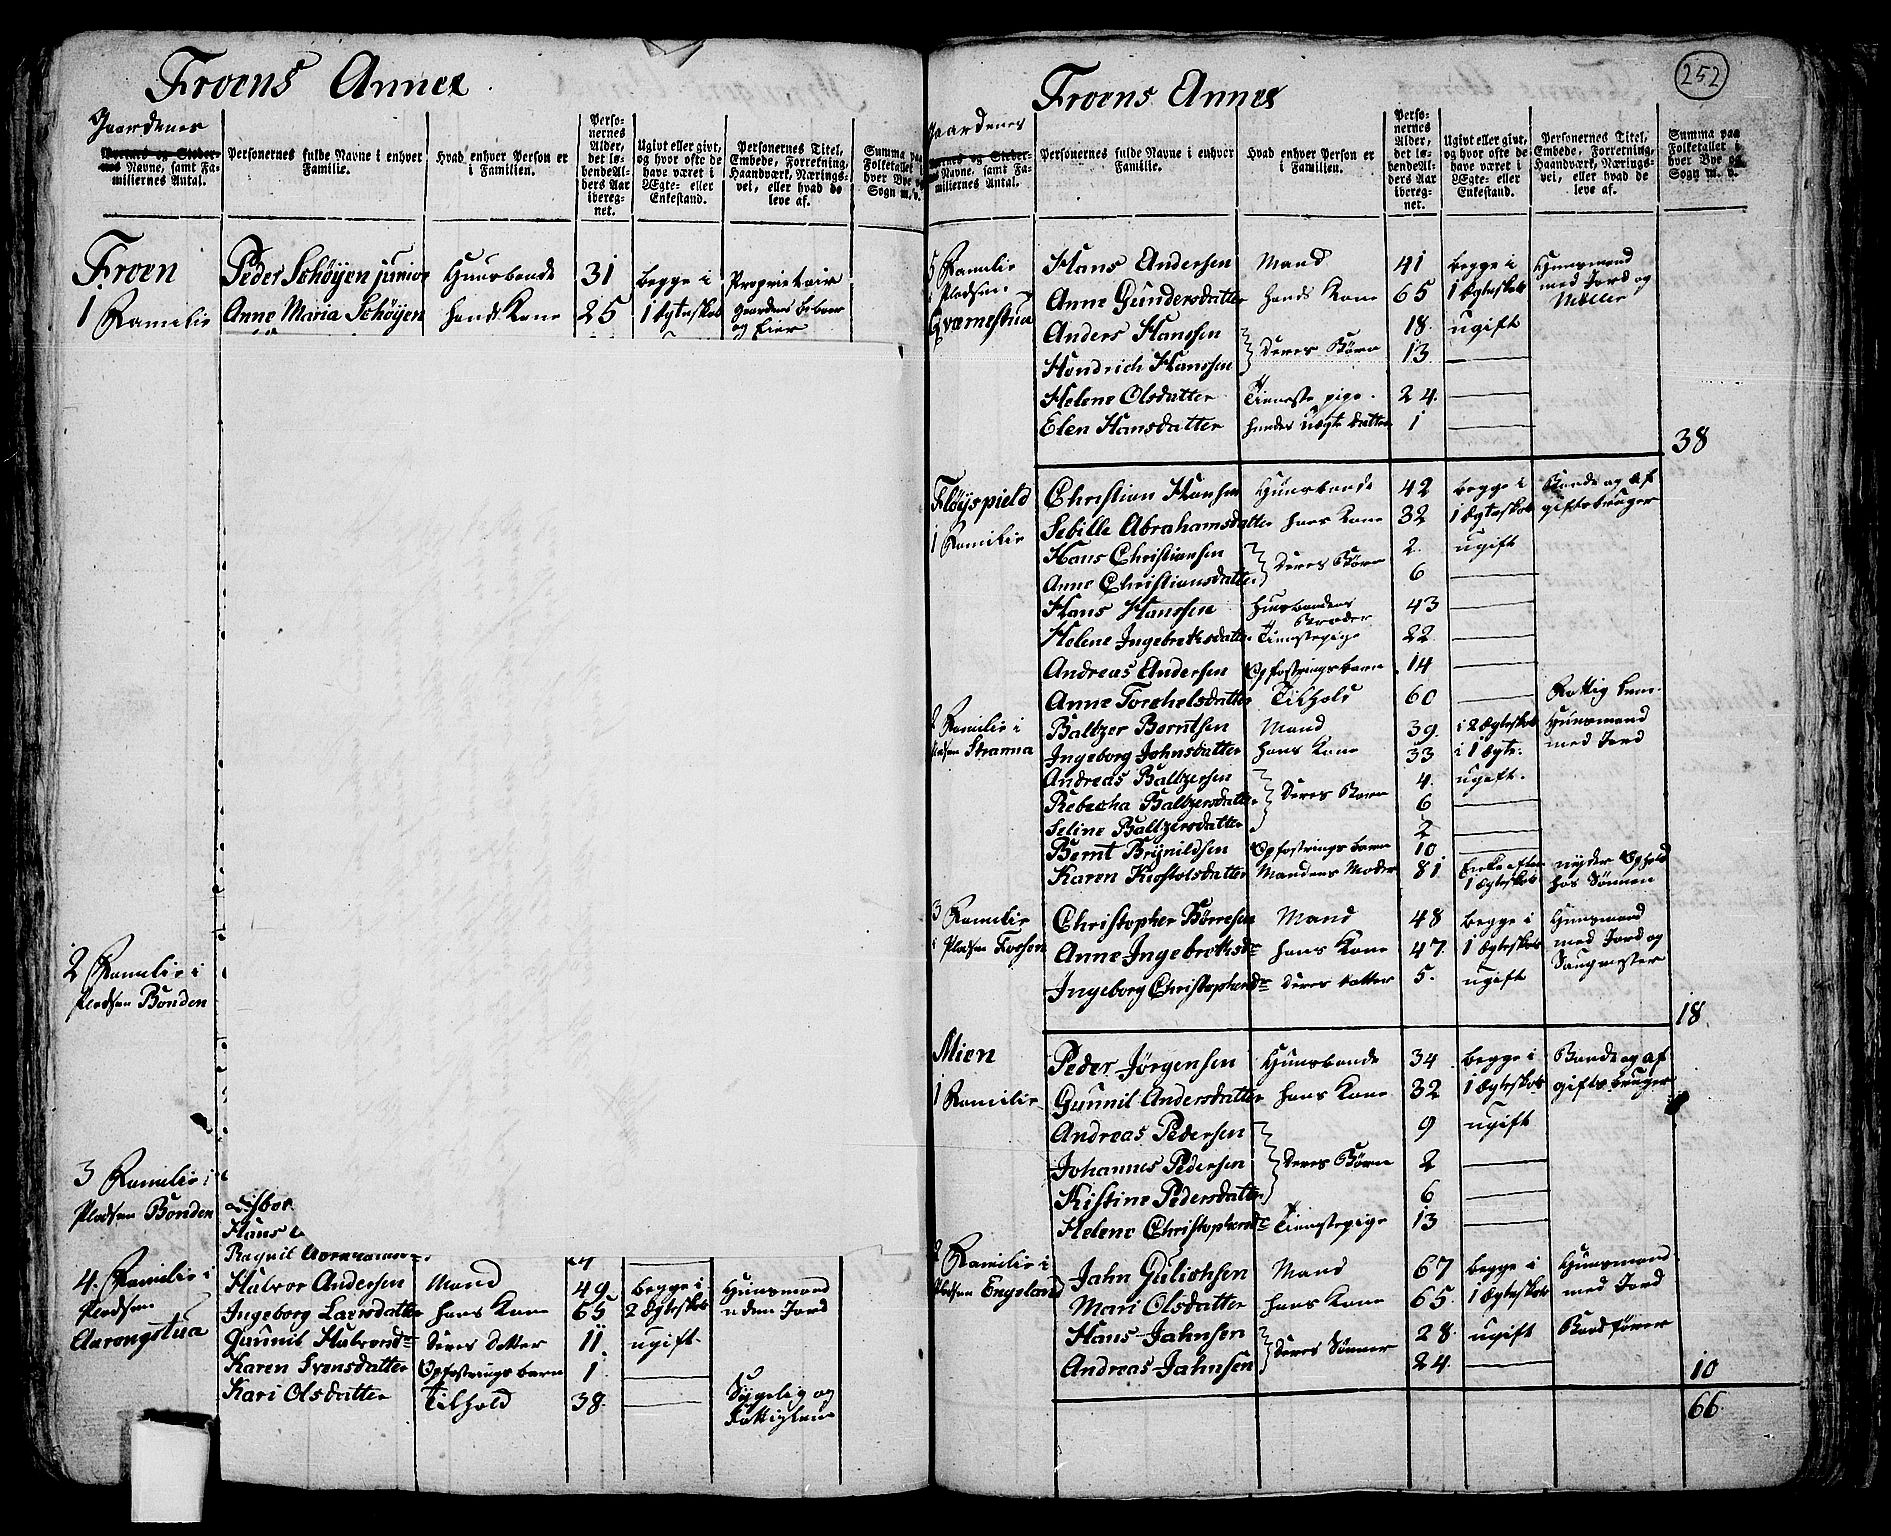 Froens Annex
Gaardenes
Personernes fulde Navne i enhver Familie.
Hvad enhver Person er i Familien.
Personernes Alder, det løbende Alders Aar iberegnet.
Ugivt eller givt, og hvor ofte de have været i Ægte- eller Enkestand.
Personernes Titel, Embede, Forretning, Haandværk, Næringsvei, eller hvad de leve af.
Summa paa Folketallet i hver Bye og Sogn m. v.
Navne, samt Familiernes Antal.
Froen Peder Schøyen junior Huusbonde 31 begge i Proprietair
1 Familie Anne Maria Schøyen hands Kone 25 1 Ægteskab Gaardens beboer og Eier
2 Familie i
Pladsen Bonden
3 Familie i
Pladsen Bonden
Hans
Ragnil
4. Familie i Halvor Andersen Mand 49 begge i Huusmand
Pladsen Ingeborg Larsdatter hans Kone 65 2 Ægteskab uden Jord
Aarongstua Gunnil Halvorsd. deres Datter 11 ugift
Karen Svensdatter Opfostrings barn 1.
Kari Olsdatter Tilhold 38. Sygelig og Fattiglem
252
Froens Annex
Gaardenes
Navne, samt Familiernes Antal.
Personernes fulde Navne i enhver Familie.
Hvad enhver Person er i Familien.
Personernes Alder, det løbende Alders Aar iberegnet.
Ugivt eller givt, og hvor ofte de have været i Ægte- eller Enkestand.
Personernes Titel, Embede, Forretning, Haandværk, Næringsvei, eller hvad de leve af.
Summa paa Folketallet i hver Bye og Sogn m. v.
5 Familie Hans Andersen Mand 41 begge i Huusmand
i Pladsen Anne Gundersdatter hands Kone 65 1 Ægteskab med Jord og Møller
Qværnestua Anders Hanssen 18. ugift
Hendrich Hanssen deres Børn 13
Helene Olsdatter Tieneste pige. 24.
Elen Hansdatter hendes uægte datter 1
38
Fløyspield Christian Hansen Huusbonde 42 begge i Bonde og af
1 Familie Sebille Abrahamsdatter hans Kone 32 1 Ægteskab giftsbruger
Hans Christiansen 2. ugift
Anne Christiansdatter deres Børn 6
Hans Hanssen Huusbondens Broder 43
Helene Ingebretksdatter Tienestepige 22
Andreas Andersen Opfostringsbarn 14
Anne Torchelsdatter Tilhold 60 Fattig lem.
2 Familie i Baltzer Berntsen Mand 39. i 2 Ægteskab Huusmand
Pladsen Stranna Ingeborg Johnsdatter hans Kone 33 i 1 Ægte. med Jord
Andreas Baltzersen 4. ugift.
Rebecha Baltzersdatter deres Børn 6
Seline Baltzersdatter 2
Bernt Brynildsen Opfostrings barn 10
Karen Kiostolsdatter Mandens Moder 81 Enke efter 1 Ægteskab nyder Ophold hos Sønnen
3 Familie Christopher Børresen Mand 48 begge i Huusmand
i Pladsen Fossen Anne Ingebretksd. hans Kone 47. 1 Ægteskab med Jord og
Ingeborg Christophersd. deres datter 5. ugift Saugmester
18.
Mien Peder Jørgensen Huusbonde 34 begge i Bonde og af
1 Familie Gunnil Andersdatter hans Kone 32 1 Ægteskab gifts bruger
Andreas Pedersen 9 ugift
Johannes Pedersen deres Børn 2
Kistine Pedersdatter 6
Helene Christophersd. Tienestepige 13
2 Familie i Jahn Gulichsen Mand 67 begge i Huusmand
Pladsen Engeland Mari Olsdatter hans Kone 65. 1 Ægteskab med Jord
Hans Jahnsen 28. ugift Baadfører
Andreas Jahnsen deres Sønner 24.
10
66.